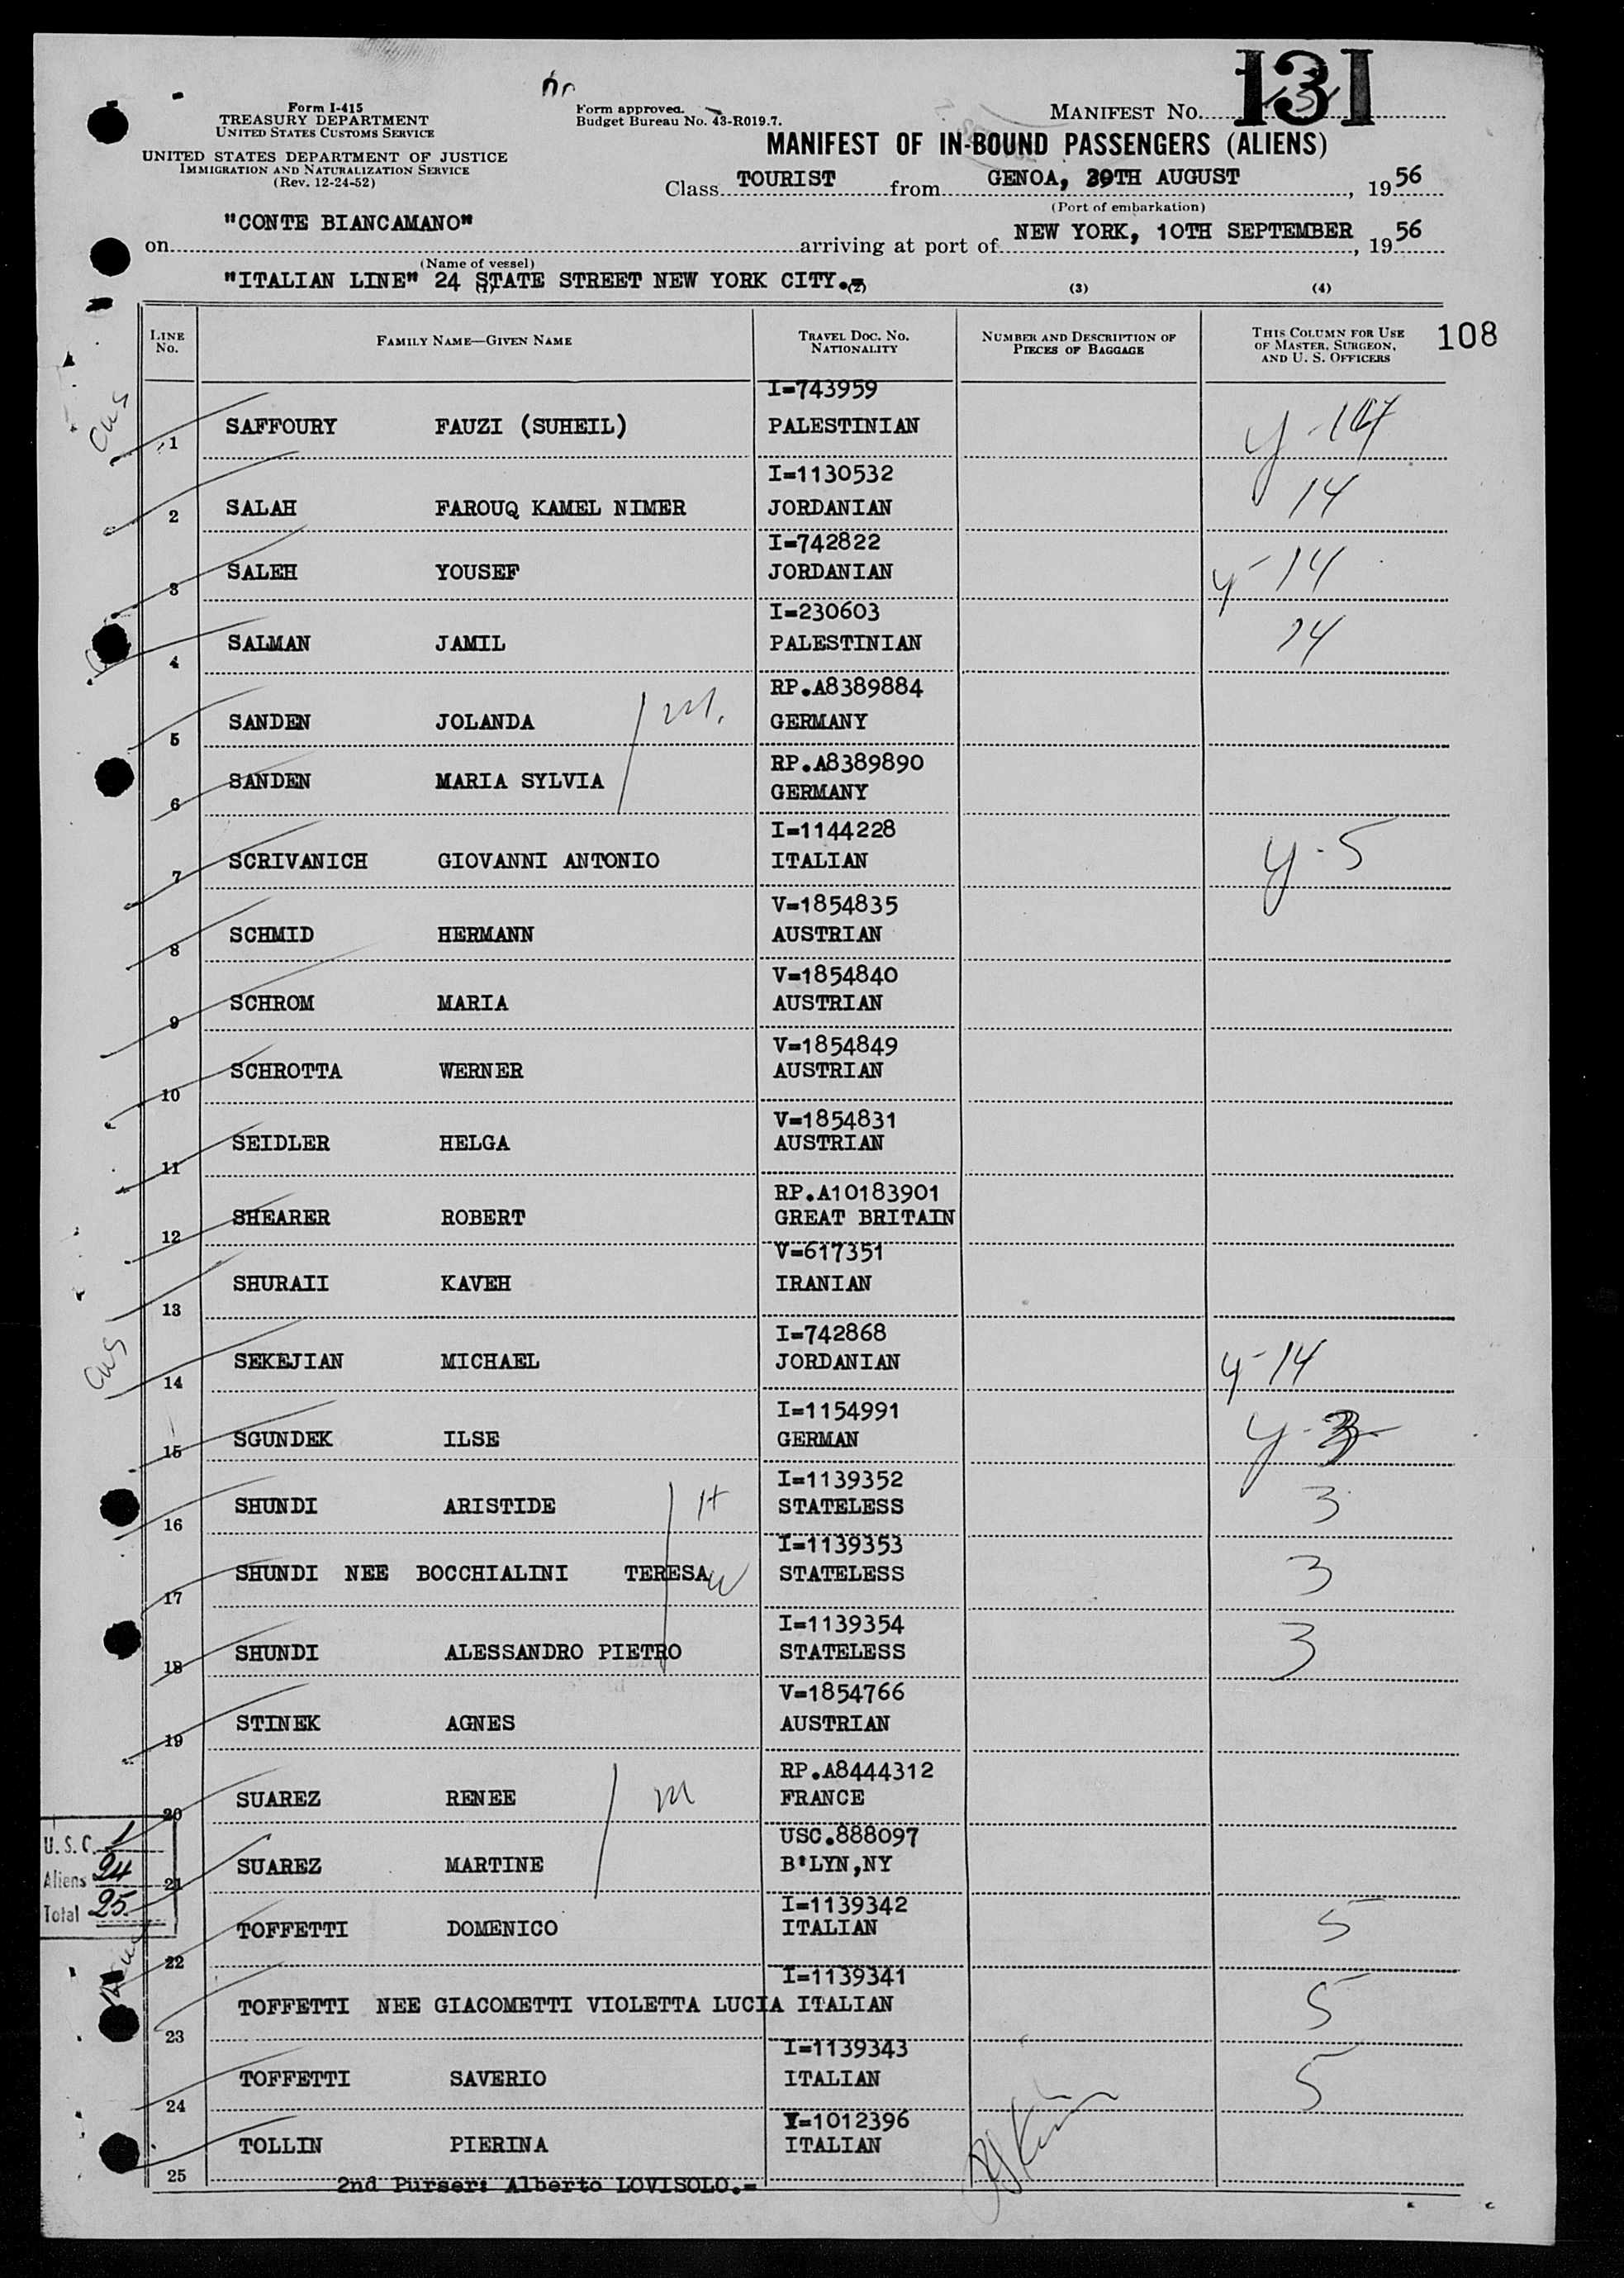 131
Form I-415
TREASURY DEPARTMENT
UNITED STATES CUSTOMS SERVICE
UNITED STATES DEPARTMENT OF JUSTICE
IMMIGRATION AND NATURALIZATION SERVICE
(Rev. 12-24-52)
Form approved.
Budget Bureau No. 43-R019.7.
MANIFEST NO.
MANIFEST OF IN-BOUND PASSENGERS (ALIENS)
Class TOURIST from GENOA, 29TH AUGUST, 1956
(Port of embarkation)
on "CONTE BIANCAMANO" arriving at port of NEW YORK, 10TH SEPTEMBER, 1956
(Name of vessel)
"ITALIAN LINE" 24 STATE STREET NEW YORK CITY.= (2) (3) (4)
LINE No. FAMILY NAME—GIVEN NAME TRAVEL DOC. NO. NATIONALITY NUMBER AND DESCRIPTION OF PIECES OF BAGGAGE THIS COLUMN FOR USE OF MASTER, SURGEON, AND U. S. OFFICERS 108
I=743959
1 SAFFOURY FAUZI (SUHEIL) PALESTINIAN
I=1130532
2 SALAH FAROUQ KAMEL NIMER JORDANIAN 14
I=742822
3 SALEH YOUSEF JORDANIAN y-14
I=230603
4 SALMAN JAMIL PALESTINIAN 14
RP.A8389884
5 SANDEN JOLANDA GERMANY
RP.A8389890
6 SANDEN MARIA SYLVIA GERMANY
I=1144228
7 SCRIVANICH GIOVANNI ANTONIO ITALIAN y-5
V=1854835
8 SCHMID HERMANN AUSTRIAN
V=1854840
9 SCHROM MARIA AUSTRIAN
V=1854849
10 SCHROTTA WERNER AUSTRIAN
V=1854831
11 SEIDLER HELGA AUSTRIAN
RP.A10183901
12 SHEARER ROBERT GREAT BRITAIN
V=617351
13 SHURAII KAVEH IRANIAN
I=742868
14 SEKEJIAN MICHAEL JORDANIAN y-14
I=1154991
15 SGUNDEK ILSE GERMAN y-3
I=1139352
16 SHUNDI ARISTIDE H STATELESS 3
I=1139353
17 SHUNDI NEE BOCCHIALINI TERESA W STATELESS 3
I=1139354
18 SHUNDI ALESSANDRO PIETRO STATELESS 3
V=1854766
19 STINEK AGNES AUSTRIAN
RP.A8444312
20 SUAREZ RENEE m FRANCE
USC.888097
21 SUAREZ MARTINE B'LYN,NY
U. S. C. 1
Aliens 24
Total 25
I=1139342
22 TOFFETTI DOMENICO ITALIAN 5
I=1139341
23 TOFFETTI NEE GIACOMETTI VIOLETTA LUCIA ITALIAN 5
I=1139343
24 TOFFETTI SAVERIO ITALIAN 5
V=1012396
25 TOLLIN PIERINA ITALIAN
2nd Purser: Alberto LOVISOLO.=